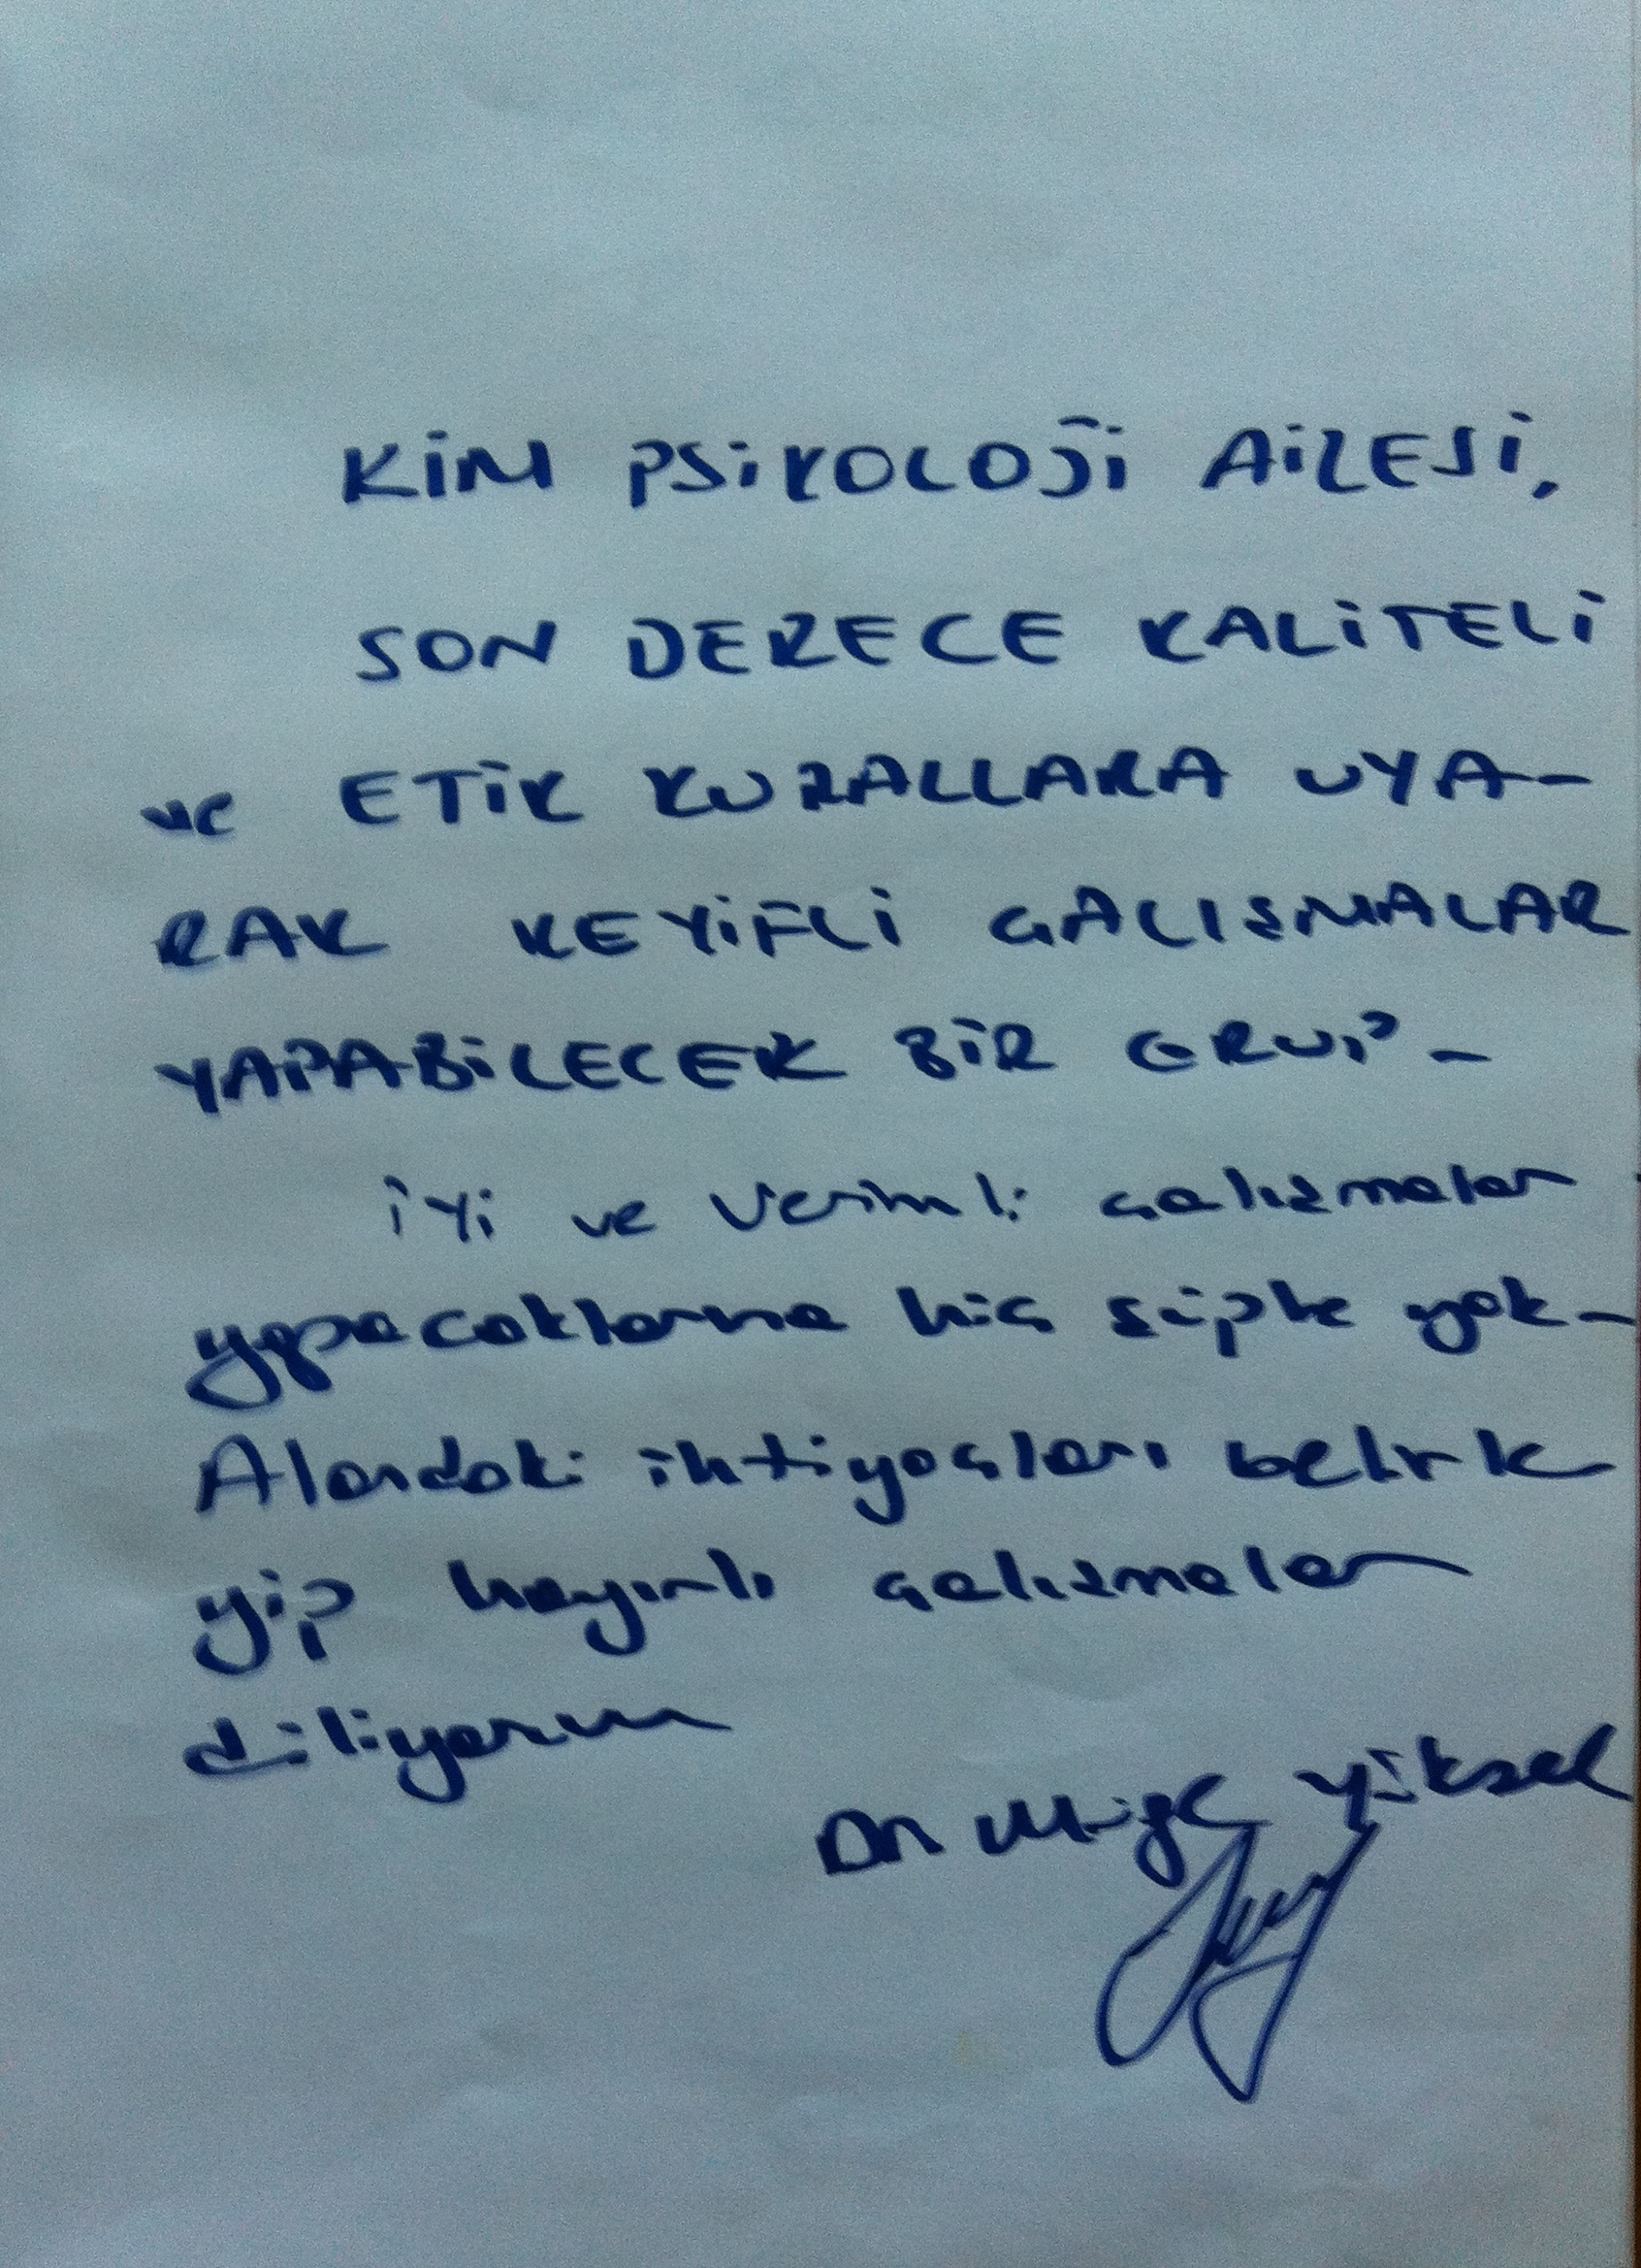 KİM PSİKOLOJİ AİLESİ,
SON DERECE KALİTELİ
ve ETİK KURALLARA UYA-
RAK KEYİFLİ ÇALIŞMALAR
YAPABİLECEK BİR GRUP-
İyi ve verimli çalışmalar
yapacaklarına hiç şüphe yok-
Alandaki ihtiyaçları belirle
yip hayırlı çalışmalar
diliyorum
Dr Müge Yüksel